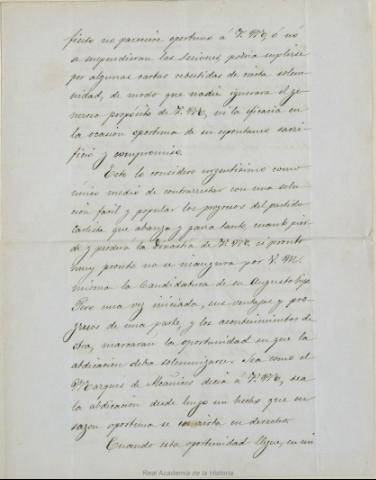 fiesto no pareciere oportuno á V. M., ó nó
se suspendieran las sesiones, podria suplirse
por algunas cartas revestidas de cierta solem-
nidad, de modo que nadie ignorara el ge-
neroso propósito de V. M., ni la eficacia en
la ocasion oportuna de su espontaneo sacri-
ficio y compromiso.
Esto lo considero urgentísimo como
único medio de contrarrestar con una solu-
cion facil y popular los progresos del partido
carlista que abanza y gana tanto, cuanto pier-
de y perderá la Dinastia de V. M., si pronto
muy pronto no se inaugura por V. M.
misma la Candidatura de su Augusto hijo.
Pero una vez iniciada, sus ventajas y pro-
gresos de una parte, y los acontecimientos de
otra, marcaran la oportunidad en que la
abdicacion deba solemnizarse. Sea como el
Marques de decia á V. M., sea
la abdicacion desde luego un hecho que en
sazon oportuna se convierta en derecho.
Cuando esta oportunidad llegue, en mi
Real Academia de la Historia